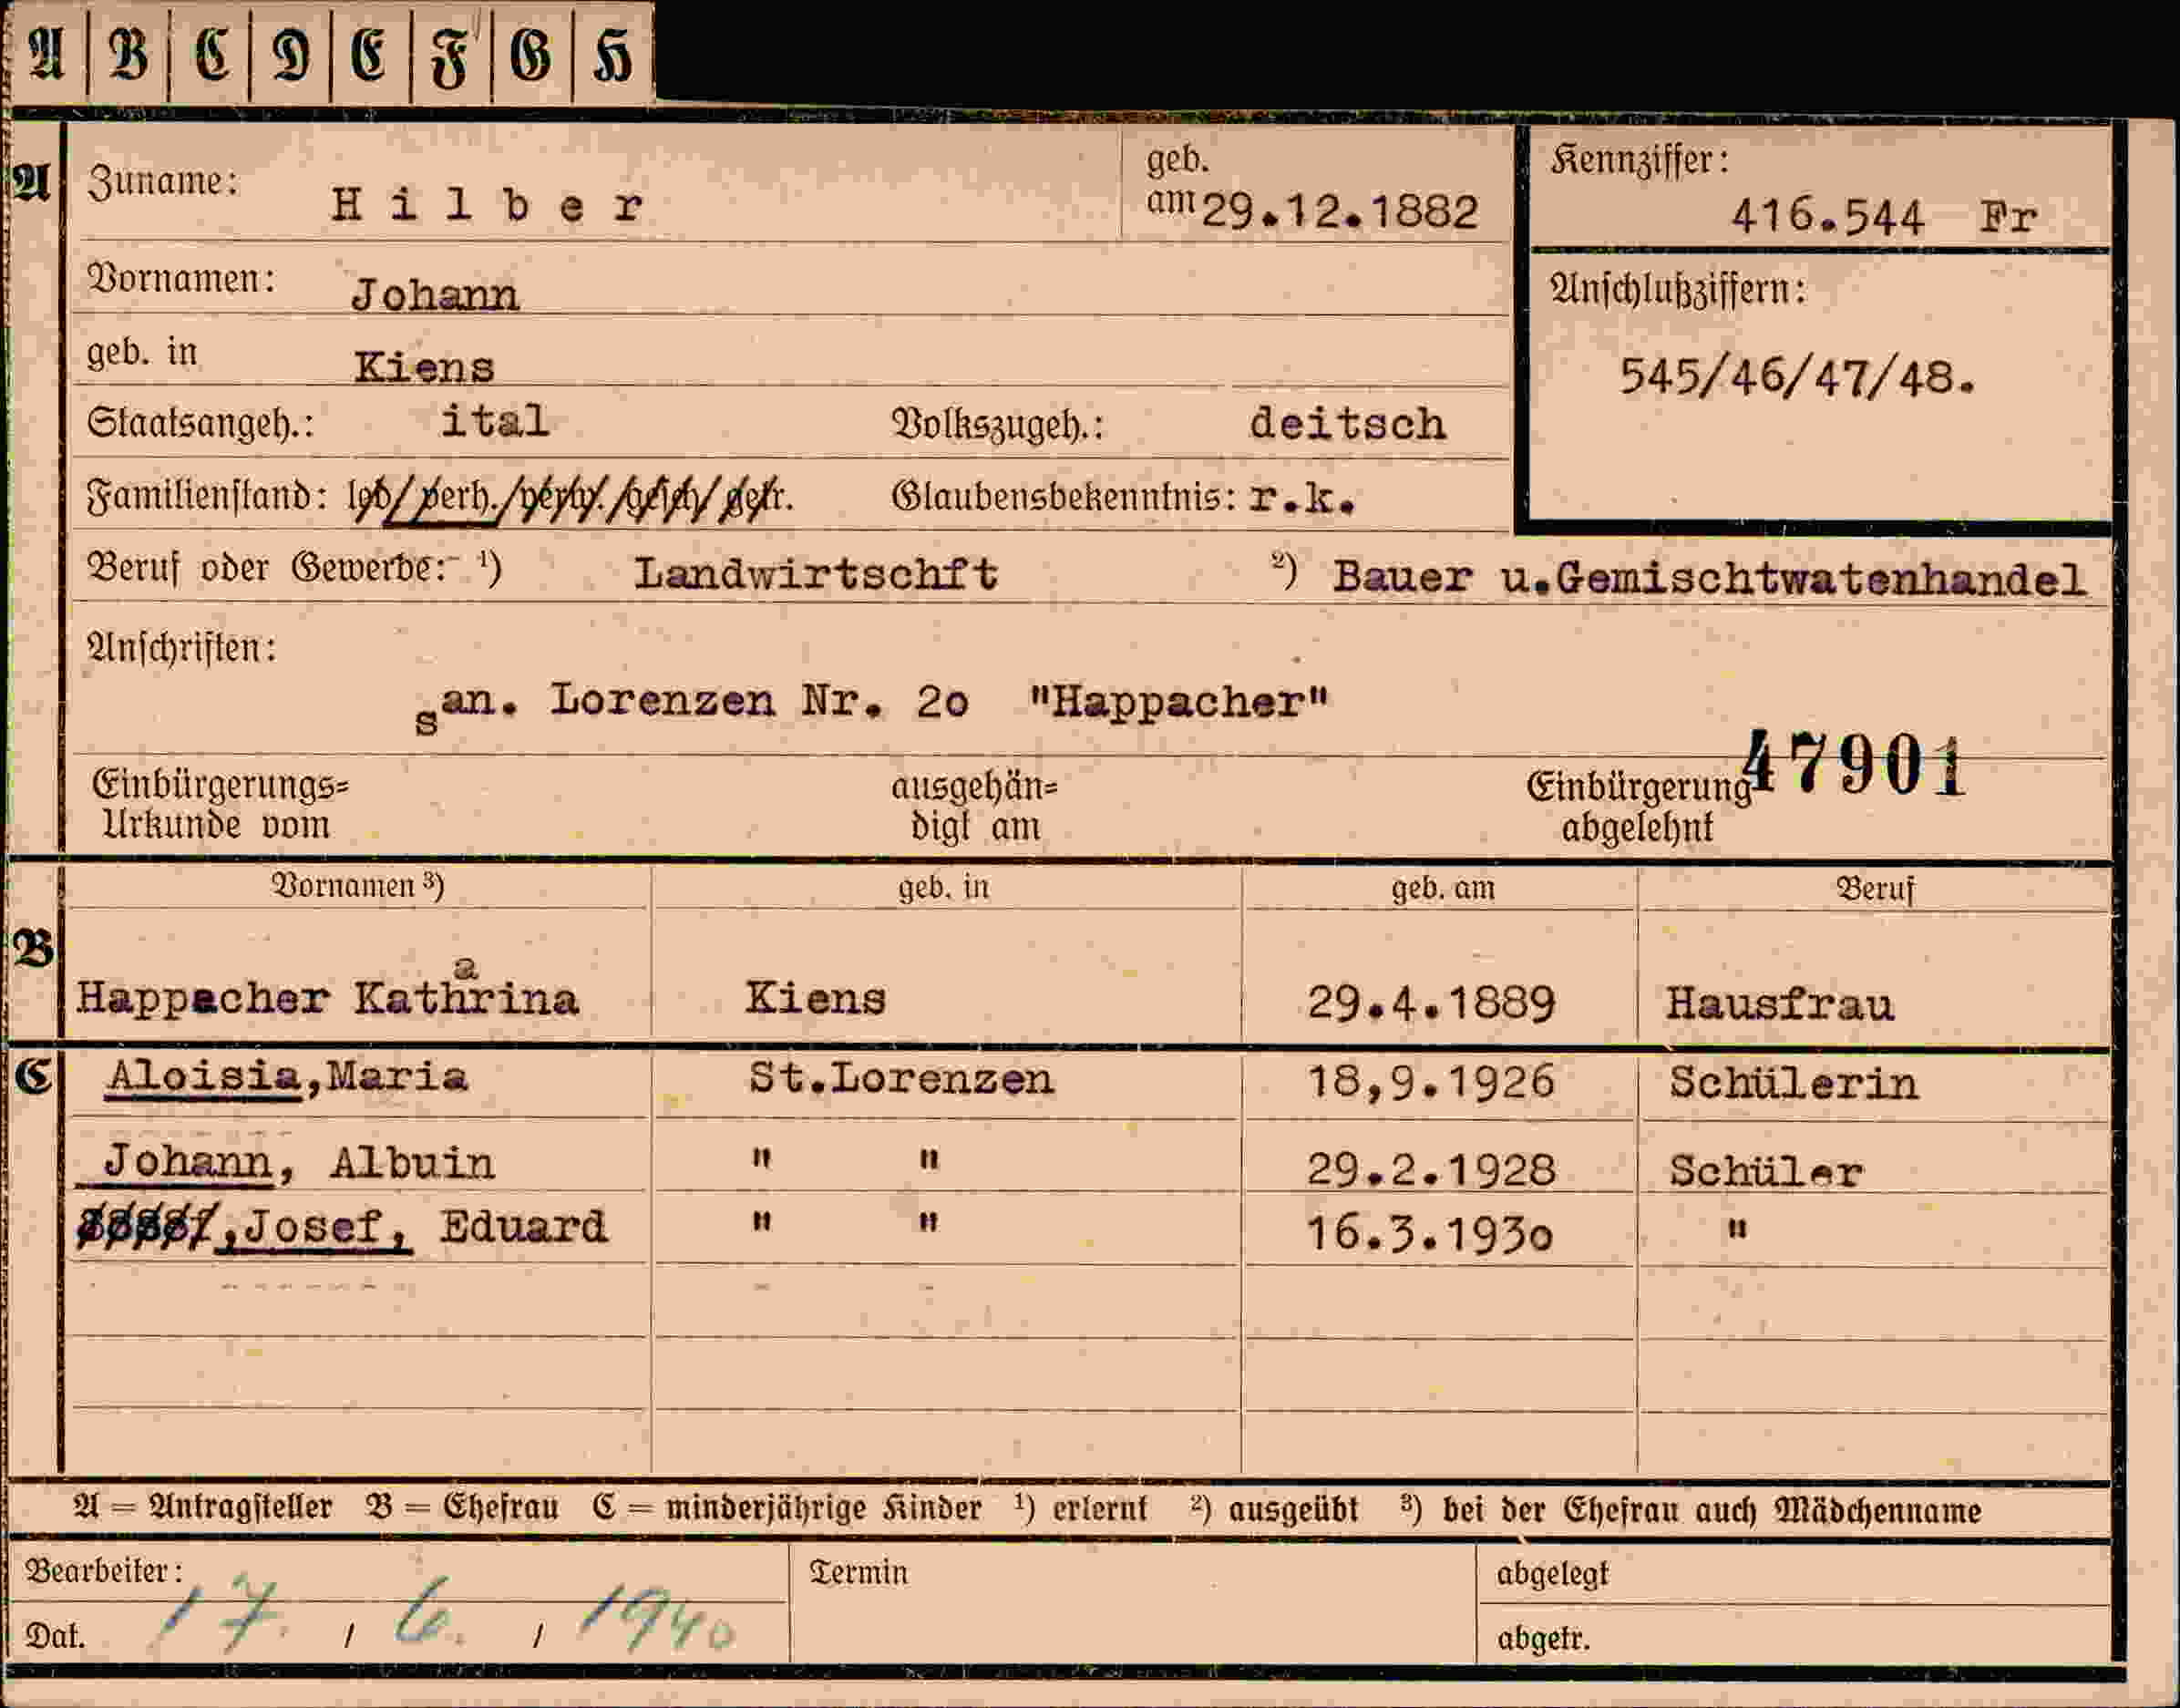 A B C D E F G H
A Zuname: Hilber geb. am 29.12.1882 Kennziffer: 416.544 Fr
Vornamen: Johann Anschlußziffern:
geb. in Kiens 545/46/47/48.
Staatsangeh.: ital Volkszugeh.: deitsch
Familienstand: led/verh./verw./gesch/getr. Glaubensbekenntnis: r.k.
Beruf oder Gewerbe: ¹) Landwirtschft ²) Bauer u.Gemischtwatenhandel
Anschriften:
san. Lorenzen Nr. 2o "Happacher"
47901
Einbürgerungs= ausgehän= Einbürgerung
Urkunde vom digt am abgelehnt
Vornamen ³) geb. in geb. am Beruf
B
a
Happacher Kathrina Kiens 29.4.1889 Hausfrau
C Aloisia,Maria St.Lorenzen 18,9.1926 Schülerin
Johann, Albuin " " 29.2.1928 Schüler
,Josef, Eduard " " 16.3.193o "
A = Antragsteller B = Ehefrau C = minderjährige Kinder ¹) erlernt ²) ausgeübt ³) bei der Ehefrau auch Mädchenname
Bearbeiter: Termin abgelegt
Dat. 17. / 6. / 1940 abgetr.